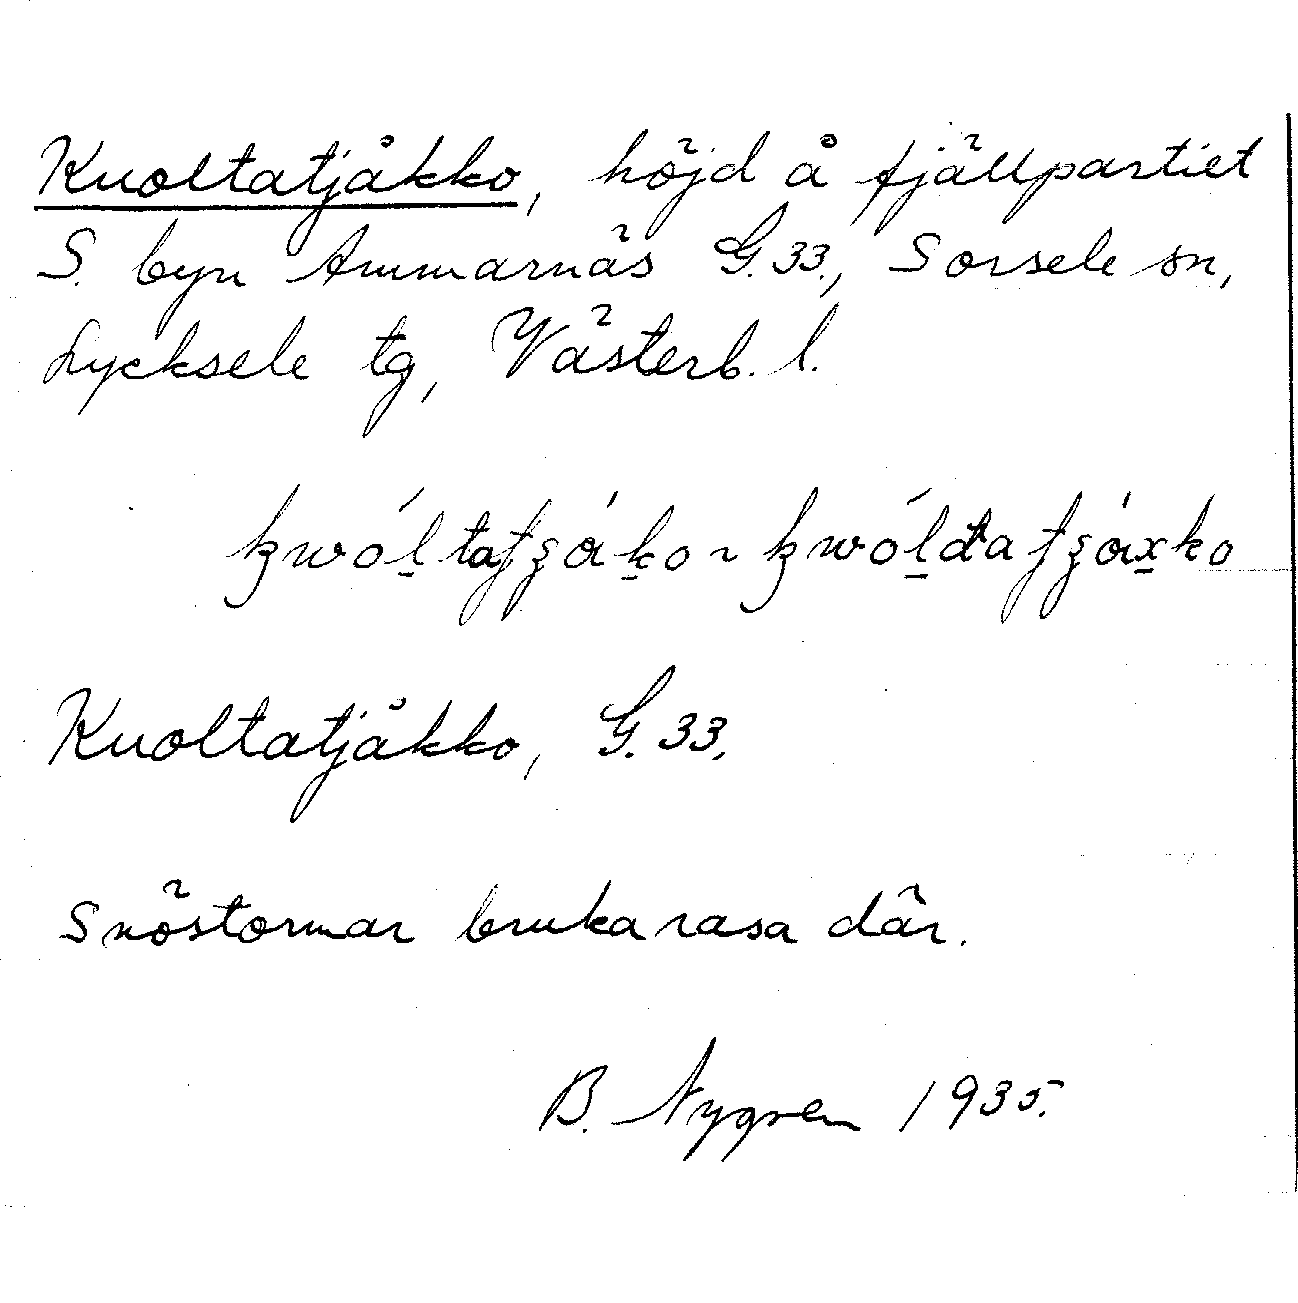 Kuoltatjåkko, höjd å fjällpartiet
S. byn Ammarnäs G. 33., Sorsele sn,
Lycksele tg, Västerb. l.
Kuoltatjåkko, G. 33.
Snöstormar bruka rasa där.
B. Nygren 1935.